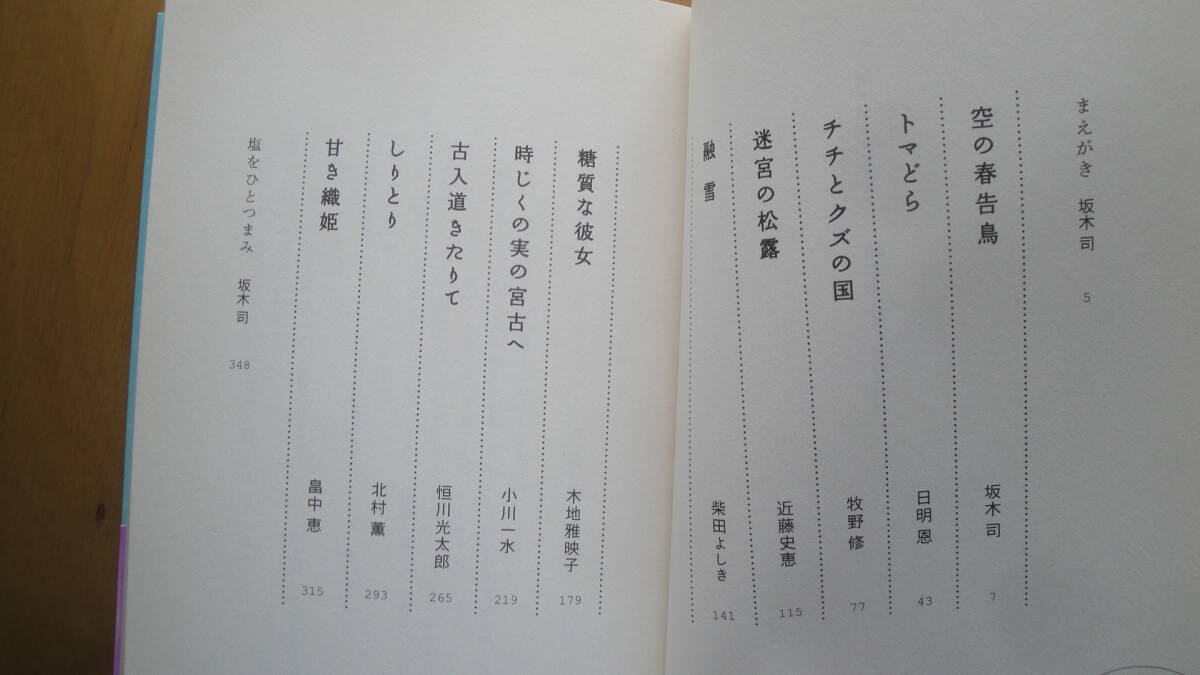 まえがき 坂木司 5
空の春告鳥 坂木司 7
トマどら 日明恩 43
チチとクズの国 牧野修 77
迷宮の松露 近藤史恵 115
融雪 柴田よしき 141
糖質な彼女 木地雅映子 179
時じくの実の宮古へ 小川一水 219
古入道きたりて 恒川光太郎 265
しりとり 北村薫 293
甘き織姫 畠中恵 315
塩をひとつまみ 坂木司 348